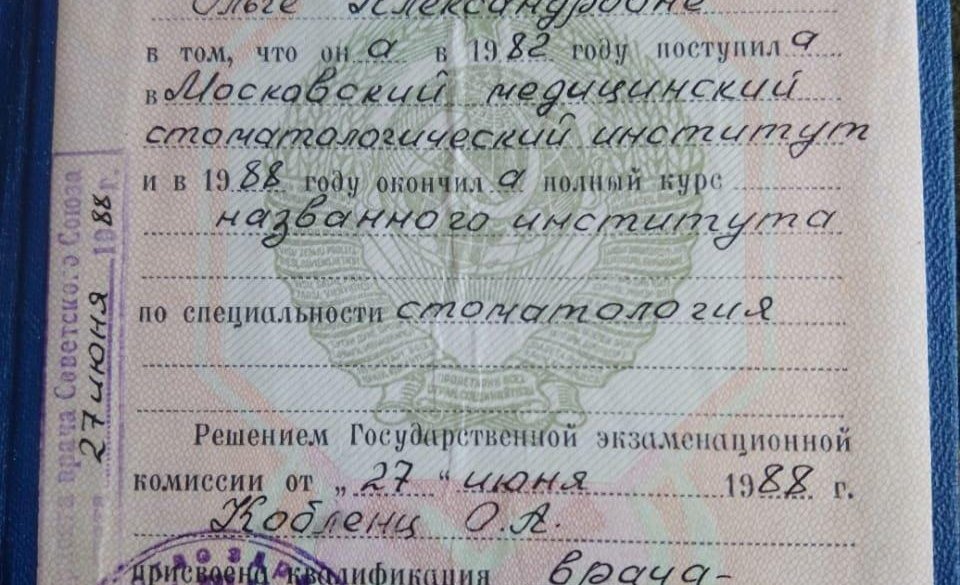 Ольге Александровне
в том, что он а в 1982 году поступил а
в Московский медицинский
стоматологический институт
и в 1988 году окончил а полный курс
названного института
по специальности стоматология
Решением Государственной экзаменационной
комиссии от „27“ июня 1988 г.
Кобленц О.А.
присвоена квалификация врача-
врача Советского Союза
27 июня 1988 г.